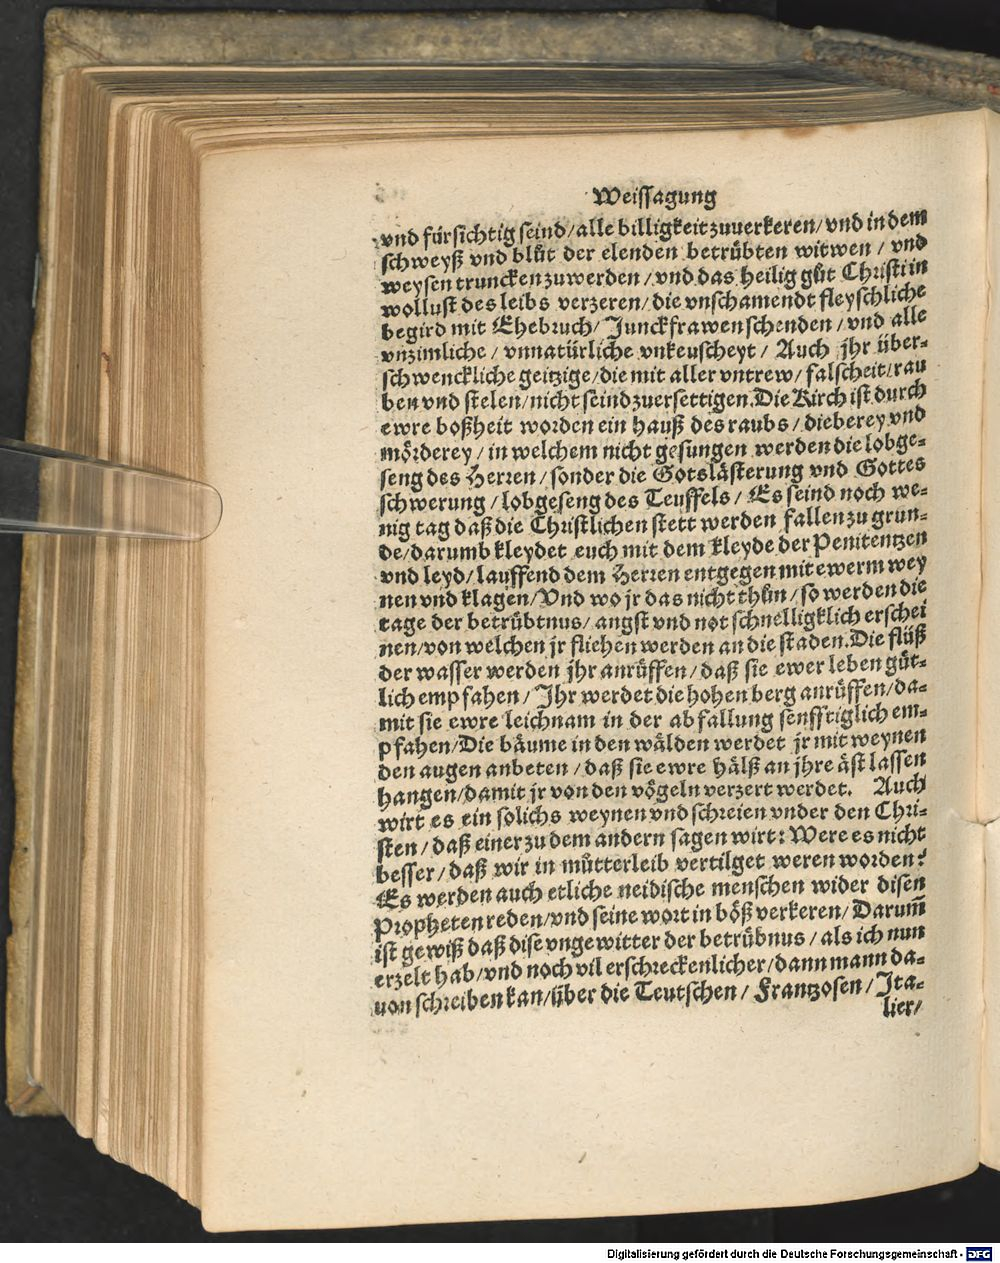 Weissagung
vnd fürsichtig seind/alle billigkeit zuuerkeren/vnd in dem
schweyß vnd blůt der elenden betrübten witwen / vnd
weysen truncken zuwerden / vnd das heilig gůt Christi in
wollust des leibs verzeren / die vnschamendt fleyschliche
begird mit Ehebruch/ Junckfrawen schenden / vnd alle
vnzimliche / vnnatürliche vnkeuscheyt / Auch jhr über-
schwenckliche geitzige/die mit aller vntrew/ falscheit/rau
ben vnd stelen/nicht seind zuersettigen. Die Kirch ist durch
ewre boßheit worden ein hauß des raubs / dieberey vnd
mörderey / in welchem nicht gesungen werden die lobge-
seng des Herren / sonder die Gotslästerung vnd Gottes
schwerung / lobgeseng des Teuffels / Es seind noch we-
nig tag daß die Christlichen stett werden fallen zu grun-
de/darumb kleydet euch mit dem kleyde der Penitentzen
vnd leyd/ lauffend dem Herren entgegen mit ewerm wey
nen vnd klagen/Vnd wo jr das nicht thůn / so werden die
tage der betrübtnus/ angst vnd not schnelligklich erschei
nen/von welchen jr fliehen werden an die staden. Die flüß
der wasser werden jhr anrüffen / daß sie ewer leben güt-
lich empfahen / Jhr werdet die hohen berg anrüffen/da-
mit sie ewre leichnam in der abfallung senfftiglich em-
pfahen/Die bäume in den wälden werdet jr mit weynen
den augen anbeten / daß sie ewre hälß an jhre äst lassen
hangen/damit jr von den vögeln verzert werdet. Auch
wirt es ein solichs weynen vnd schreien vnder den Chri-
sten / daß einer zu dem andern sagen wirt: Were es nicht
besser / daß wir in mütterleib vertilget weren worden?
Es werden auch etliche neidische menschen wider disen
Propheten reden/vnd seine wort in böß verkeren/ Darum̄
ist gewiß daß dise vngewitter der betrübnus / als ich nun
erzelt hab/vnd noch vil erschreckenlicher/dann mann da-
uon schreiben kan/über die Teutschen / Frantzosen / Jta-
lier/
Digitalisierung gefördert durch die Deutsche Forschungsgemeinschaft - DFG